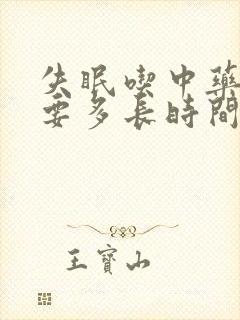 失眠喫中藥
要多長時間
王寶山